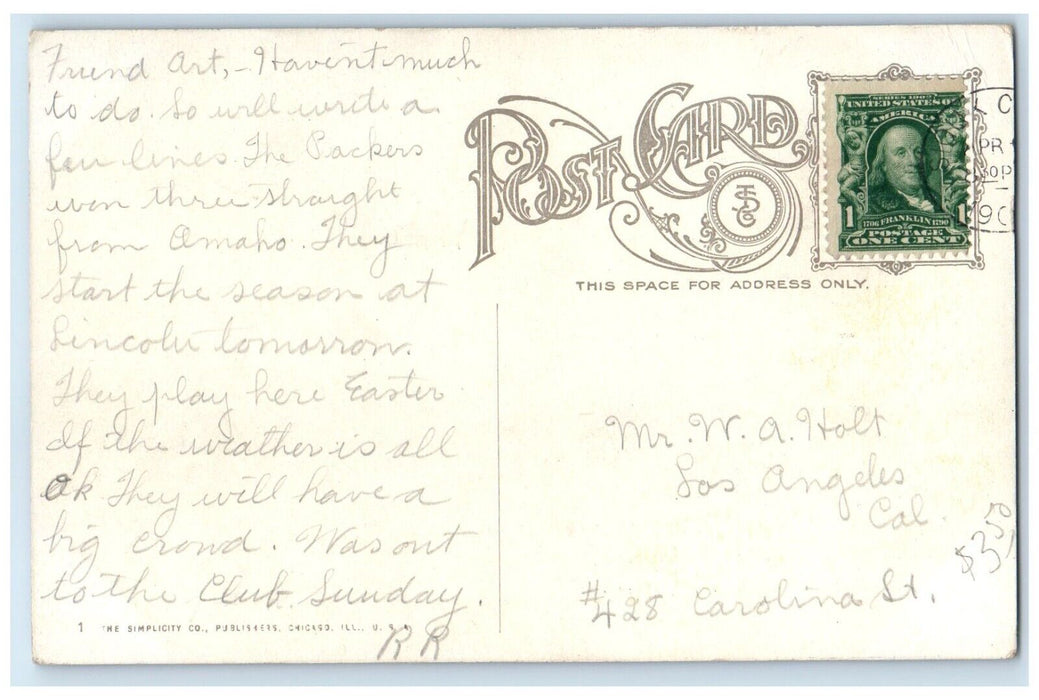 Friend Art, - Havent much
to do. So will write a
few lines. The Packers
won three straight
from Omaho. They
start the season at
Lincoln tomorrow.
They play here Easter
If the weather is all
ok They will have a
big crowd. Was out
to the Club Sunday.
RR
1 THE SIMPLICITY CO., PUBLISHERS, CHICAGO, ILL., U. S. A.
POST CARD
THIS SPACE FOR ADDRESS ONLY.
SERIES 1902
UNITED STATES OF
AMERICA
1 1
1706 FRANKLIN 1790
POSTAGE
ONE CENT
Mr. W. A. Holt
Los Angeles
Cal.
$3.50
#428 Carolina St.